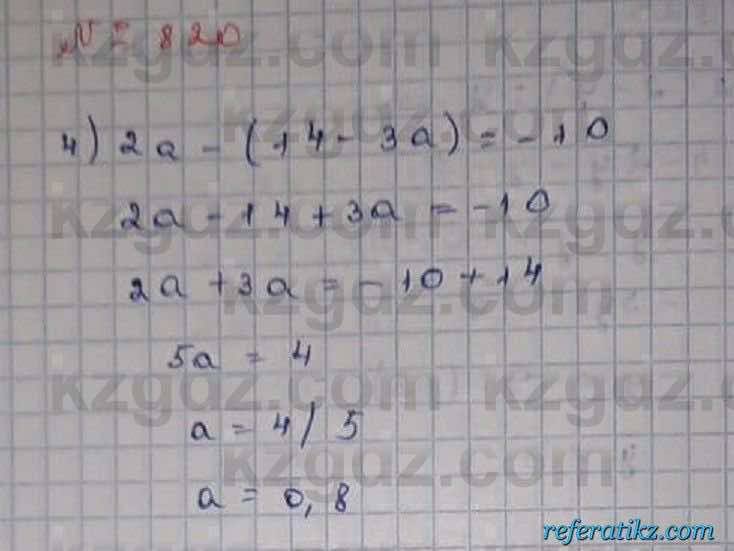 № 820
4) 2a - (14 - 3a) = -10
2a - 14 + 3a = -10
2a + 3a = -10 + 14
5a = 4
a = 4/5
a = 0,8
kzgdz.com
kzgdz.com
kzgdz.com
kzgdz.com
kzgdz.com
kzgdz.com
referatikz.com